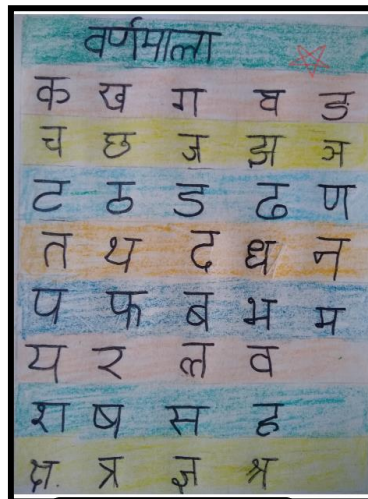 वर्णमाला
क ख ग घ ङ
च छ ज झ ञ
ट ठ ड ढ ण
त थ द ध न
प फ ब भ म
य र ल व
श ष स ह
क्ष त्र ज्ञ श्र